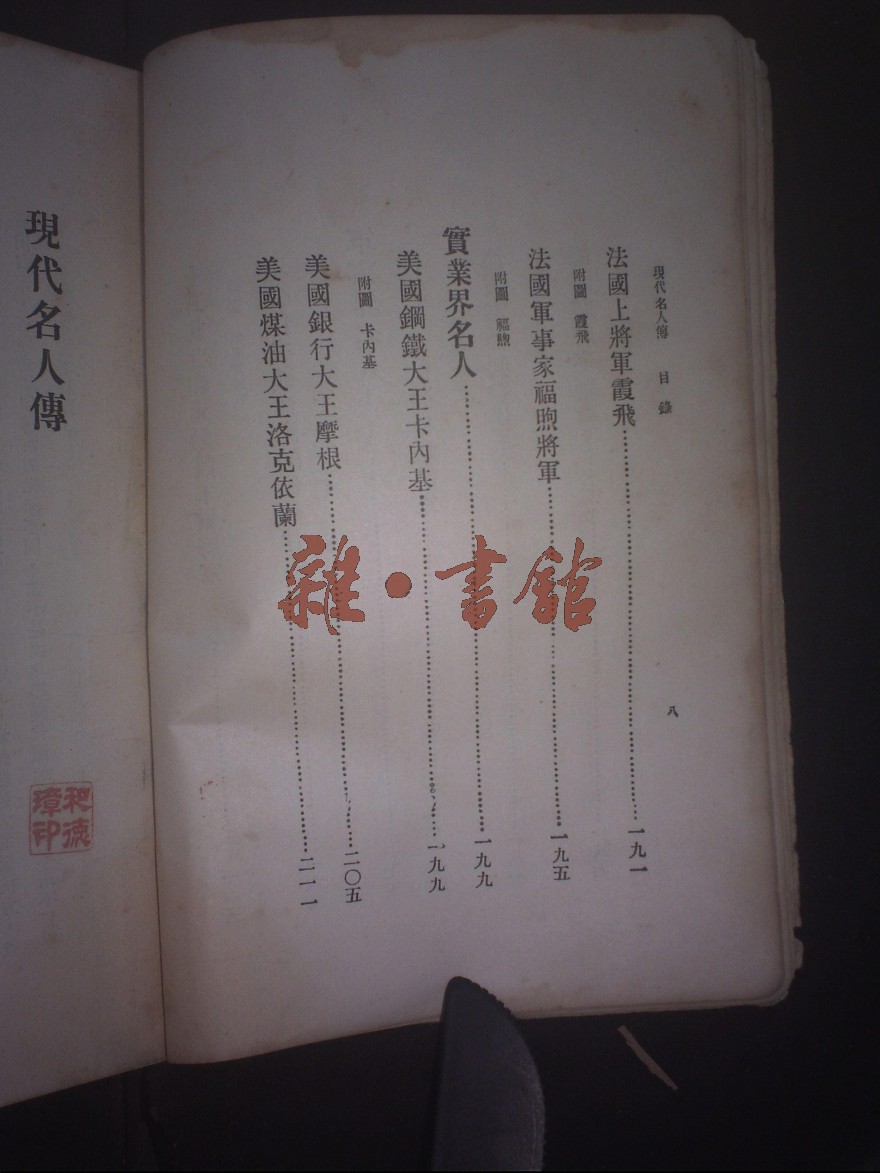 現代名人傳 目錄 八
法國上將軍霞飛……一九一
附圖 霞飛
法國軍事家福煦將軍……一九五
附圖 福煦
實業界名人……一九九
美國鋼鐵大王卡內基……一九九
附圖 卡內基
美國銀行大王摩根……二〇五
美國煤油大王洛克依蘭……二一一
雜·書館
現代名人傳